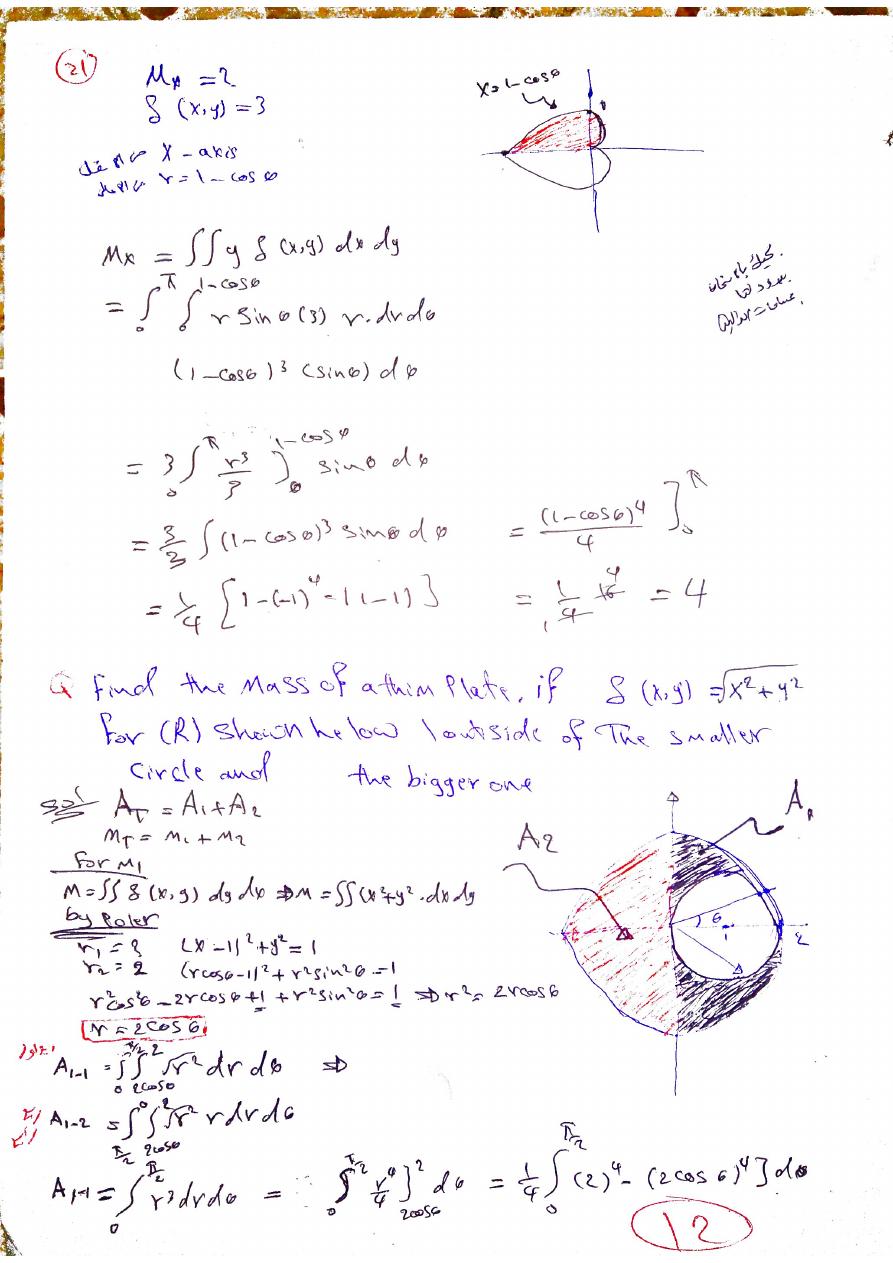 (21)
Mx = 2
δ (x,y) = 3
x - axis
r = 1 - cos θ
x = 1 - cos θ
Mx = ∫∫ y δ (x,y) dx dy
= ∫₀^π ∫₀^(1-cosθ) r sin θ (3) r. dr dθ
(1-cosθ)³ (sinθ) dθ
= 3 ∫₀^π r³/3 ]₀^(1-cosθ) sinθ dθ
= 3/3 ∫(1-cosθ)³ sinθ dθ = (1-cosθ)⁴/4 ]₀^π
= 1/4 [1-(-1)⁴ - (1-1)] = 1/4 16 = 4
Q Find the Mass of a thin Plate, if δ (x,y) = √(x²+y²)
for (R) shown below / outside of The smaller
circle and the bigger one
sol A_T = A₁ + A₂
M_T = M₁ + M₂
for M₁
M = ∫∫ δ (x,y) dy dx ⇒ M = ∫∫ (x²+y² . dx dy
by Poler
r₁ = ? (x-1)² + y² = 1
r₂ = 2 (r cosθ - 1)² + r² sin²θ = 1
r² cos²θ - 2r cosθ + 1 + r² sin²θ = 1 ⇒ r² = 2r cosθ
r = 2 cos θ
A₂
A₁
θ
1
2
A₁₋₁ = ∫₀^(π/2) ∫_(2cosθ)^2 √r² dr dθ ⇒
A₁₋₂ = ∫_(π/2)^0 ∫_(2cosθ)^2 √r² r dr dθ
A₁₋₁ = ∫₀^(π/2) r³ dr dθ = ∫₀^(π/2) r⁴/4 ]_(2cosθ)^2 dθ = 1/4 ∫₀^(π/2) (2)⁴ - (2cosθ)⁴ ] dθ
12